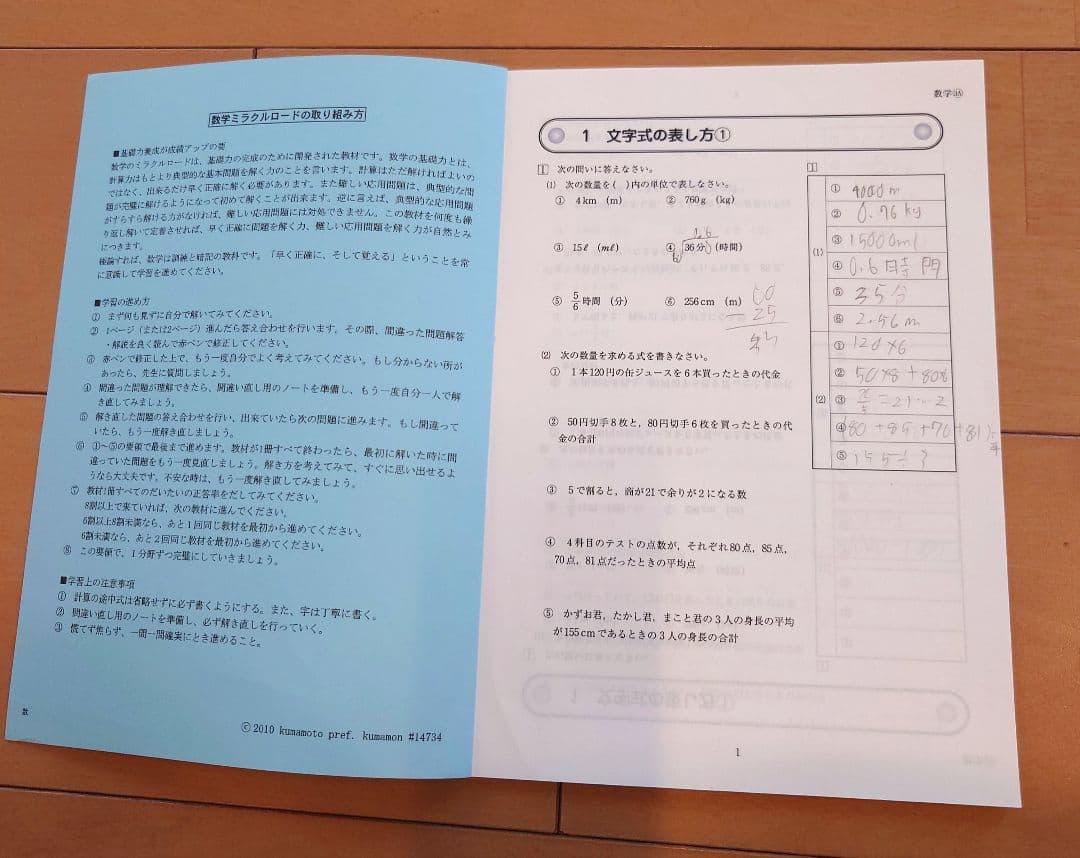 数学ミラクルロードの取り組み方
■基礎力養成が成績アップの要
数学のミラクルロードは、基礎力の完成のために開発された教材です。数学の基礎力とは、
計算力はもとより典型的な基本問題を解く力のことを言います。計算はただ解ければよいの
ではなく、出来るだけ早く正確に解く必要があります。また難しい応用問題は、典型的な問
題が完璧に解けるようになって初めて解くことが出来ます。逆に言えば、典型的な応用問題
がすらすら解ける力がなければ、難しい応用問題には対処できません。この教材を何度も繰
り返し解いて定着させれば、早く正確に問題を解く力、難しい応用問題を解く力が自然とみ
につきます。
極論すれば、数学は訓練と暗記の教科です。「早く正確に、そして覚える」ということを常
に意識して学習を進めてください。
■学習の進め方
① まず何も見ずに自分で解いてみてください。
② 1ページ（または2ページ）進んだら答え合わせを行います。その際、間違った問題解答
・解説を良く読んで赤ペンで修正してください。
③ 赤ペンで修正した上で、もう一度自分でよく考えてみてください。もし分からない所が
あったら、先生に質問しましょう。
④ 間違った問題が理解できたら、間違い直し用のノートを準備し、もう一度自分一人で解
き直してみましょう。
⑤ 解き直した問題の答え合わせを行い、出来ていたら次の問題に進みます。もし間違って
いたら、もう一度解き直しましょう。
⑥ ①～⑤の要領で最後まで進めます。教材が1冊すべて終わったら、最初に解いた時に間
違っていた問題をもう一度見直しましょう。解き方を考えてみて、すぐに思い出せるよ
うなら大丈夫です。不安な時は、もう一度解き直してみましょう。
⑦ 教材1冊すべてのだいたいの正答率をだしてみてください。
8割以上で来ていれば、次の教材に進んでください。
6割以上8割未満なら、あと1回同じ教材を最初から進めてください。
6割未満なら、あと2回同じ教材を最初から進めてください。
⑧ この要領で、1分野ずつ完璧にしていきましょう。
■学習上の注意事項
① 計算の途中式は省略せずに必ず書くようにする。また、字は丁寧に書く。
② 間違い直し用のノートを準備し、必ず解き直しを行っていく。
③ 慌てず焦らず、一問一問確実にとき進めること。
数
ⓒ2010 kumamoto pref. kumamon #14734
1 文字式の表し方①
1 次の問いに答えなさい。
(1) 次の数量を( )内の単位で表しなさい。
① 4km (m) ② 760g (kg)
③ 15ℓ (mℓ) ④ 36分 (時間)
⑤ 5/6時間 (分) ⑥ 256cm (m)
60
25
(2) 次の数量を求める式を書きなさい。
① 1本120円の缶ジュースを6本買ったときの代金
② 50円切手8枚と，80円切手6枚を買ったときの代
金の合計
③ 5で割ると，商が21で余りが2になる数
④ 4科目のテストの点数が，それぞれ80点，85点，
70点，81点だったときの平均点
⑤ かずお君，たかし君，まこと君の3人の身長の平均
が155cmであるときの3人の身長の合計
1
(1)
① 4000m
② 0.76kg
③ 15000ml
④ 0.6時間
⑤ 35分
⑥ 2.56m
(2)
① 120×6
② 50×8+80×
③
④ (80+85+70+81)÷
⑤ 155÷3
1